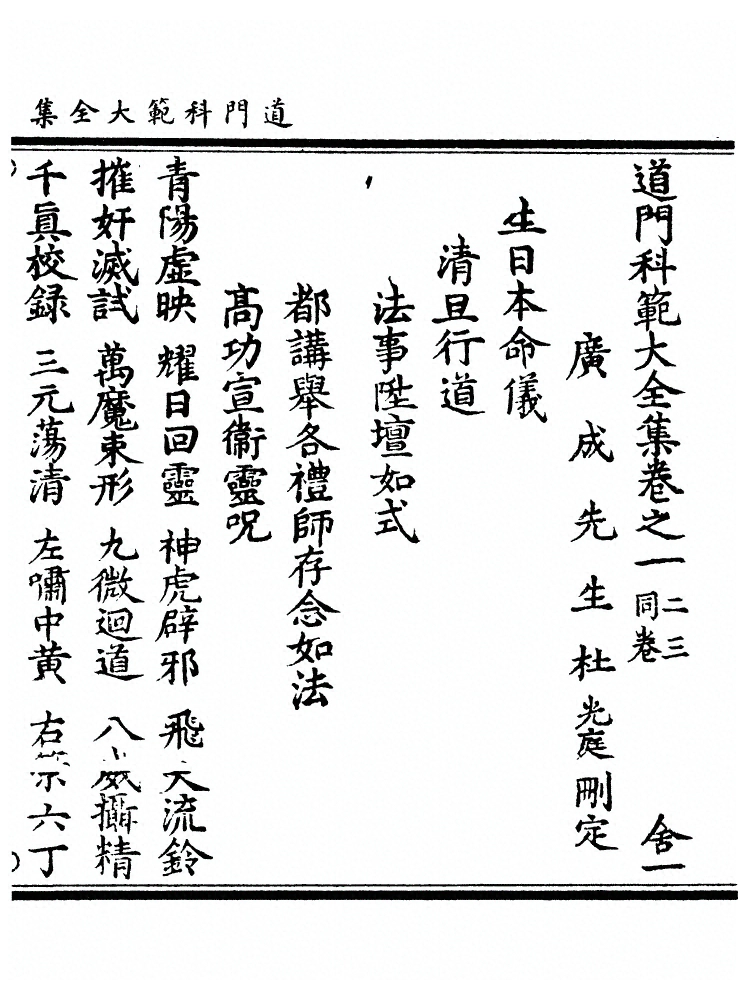 道門科範大全集
道門科範大全集卷之一 二三同卷 舍一
廣成先生杜光庭刪定
生日本命儀
清旦行道
法事陞壇如式
都講舉各禮師存念如法
髙功宣衞靈呪
青陽虛映 耀日回靈 神虎辟邪 飛天流鈴
摧奸滅試 萬魔束形 九微迴道 八威攝精
千眞校録 三元蕩清 左嘯中黃 右 六丁